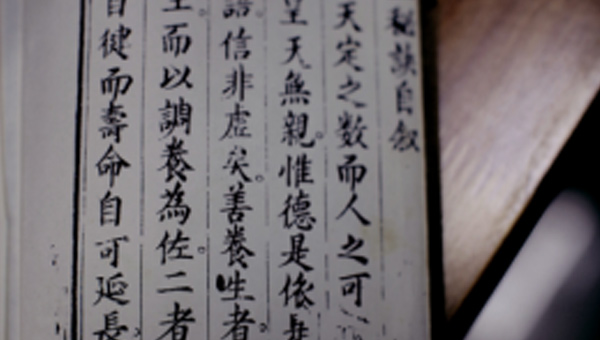 秘訣自叙
天定之數而人之可
皇天無親。惟德是依
語信非虛矣。善養生者。
而以調養為佐。二者
自徤而壽命自可延長。